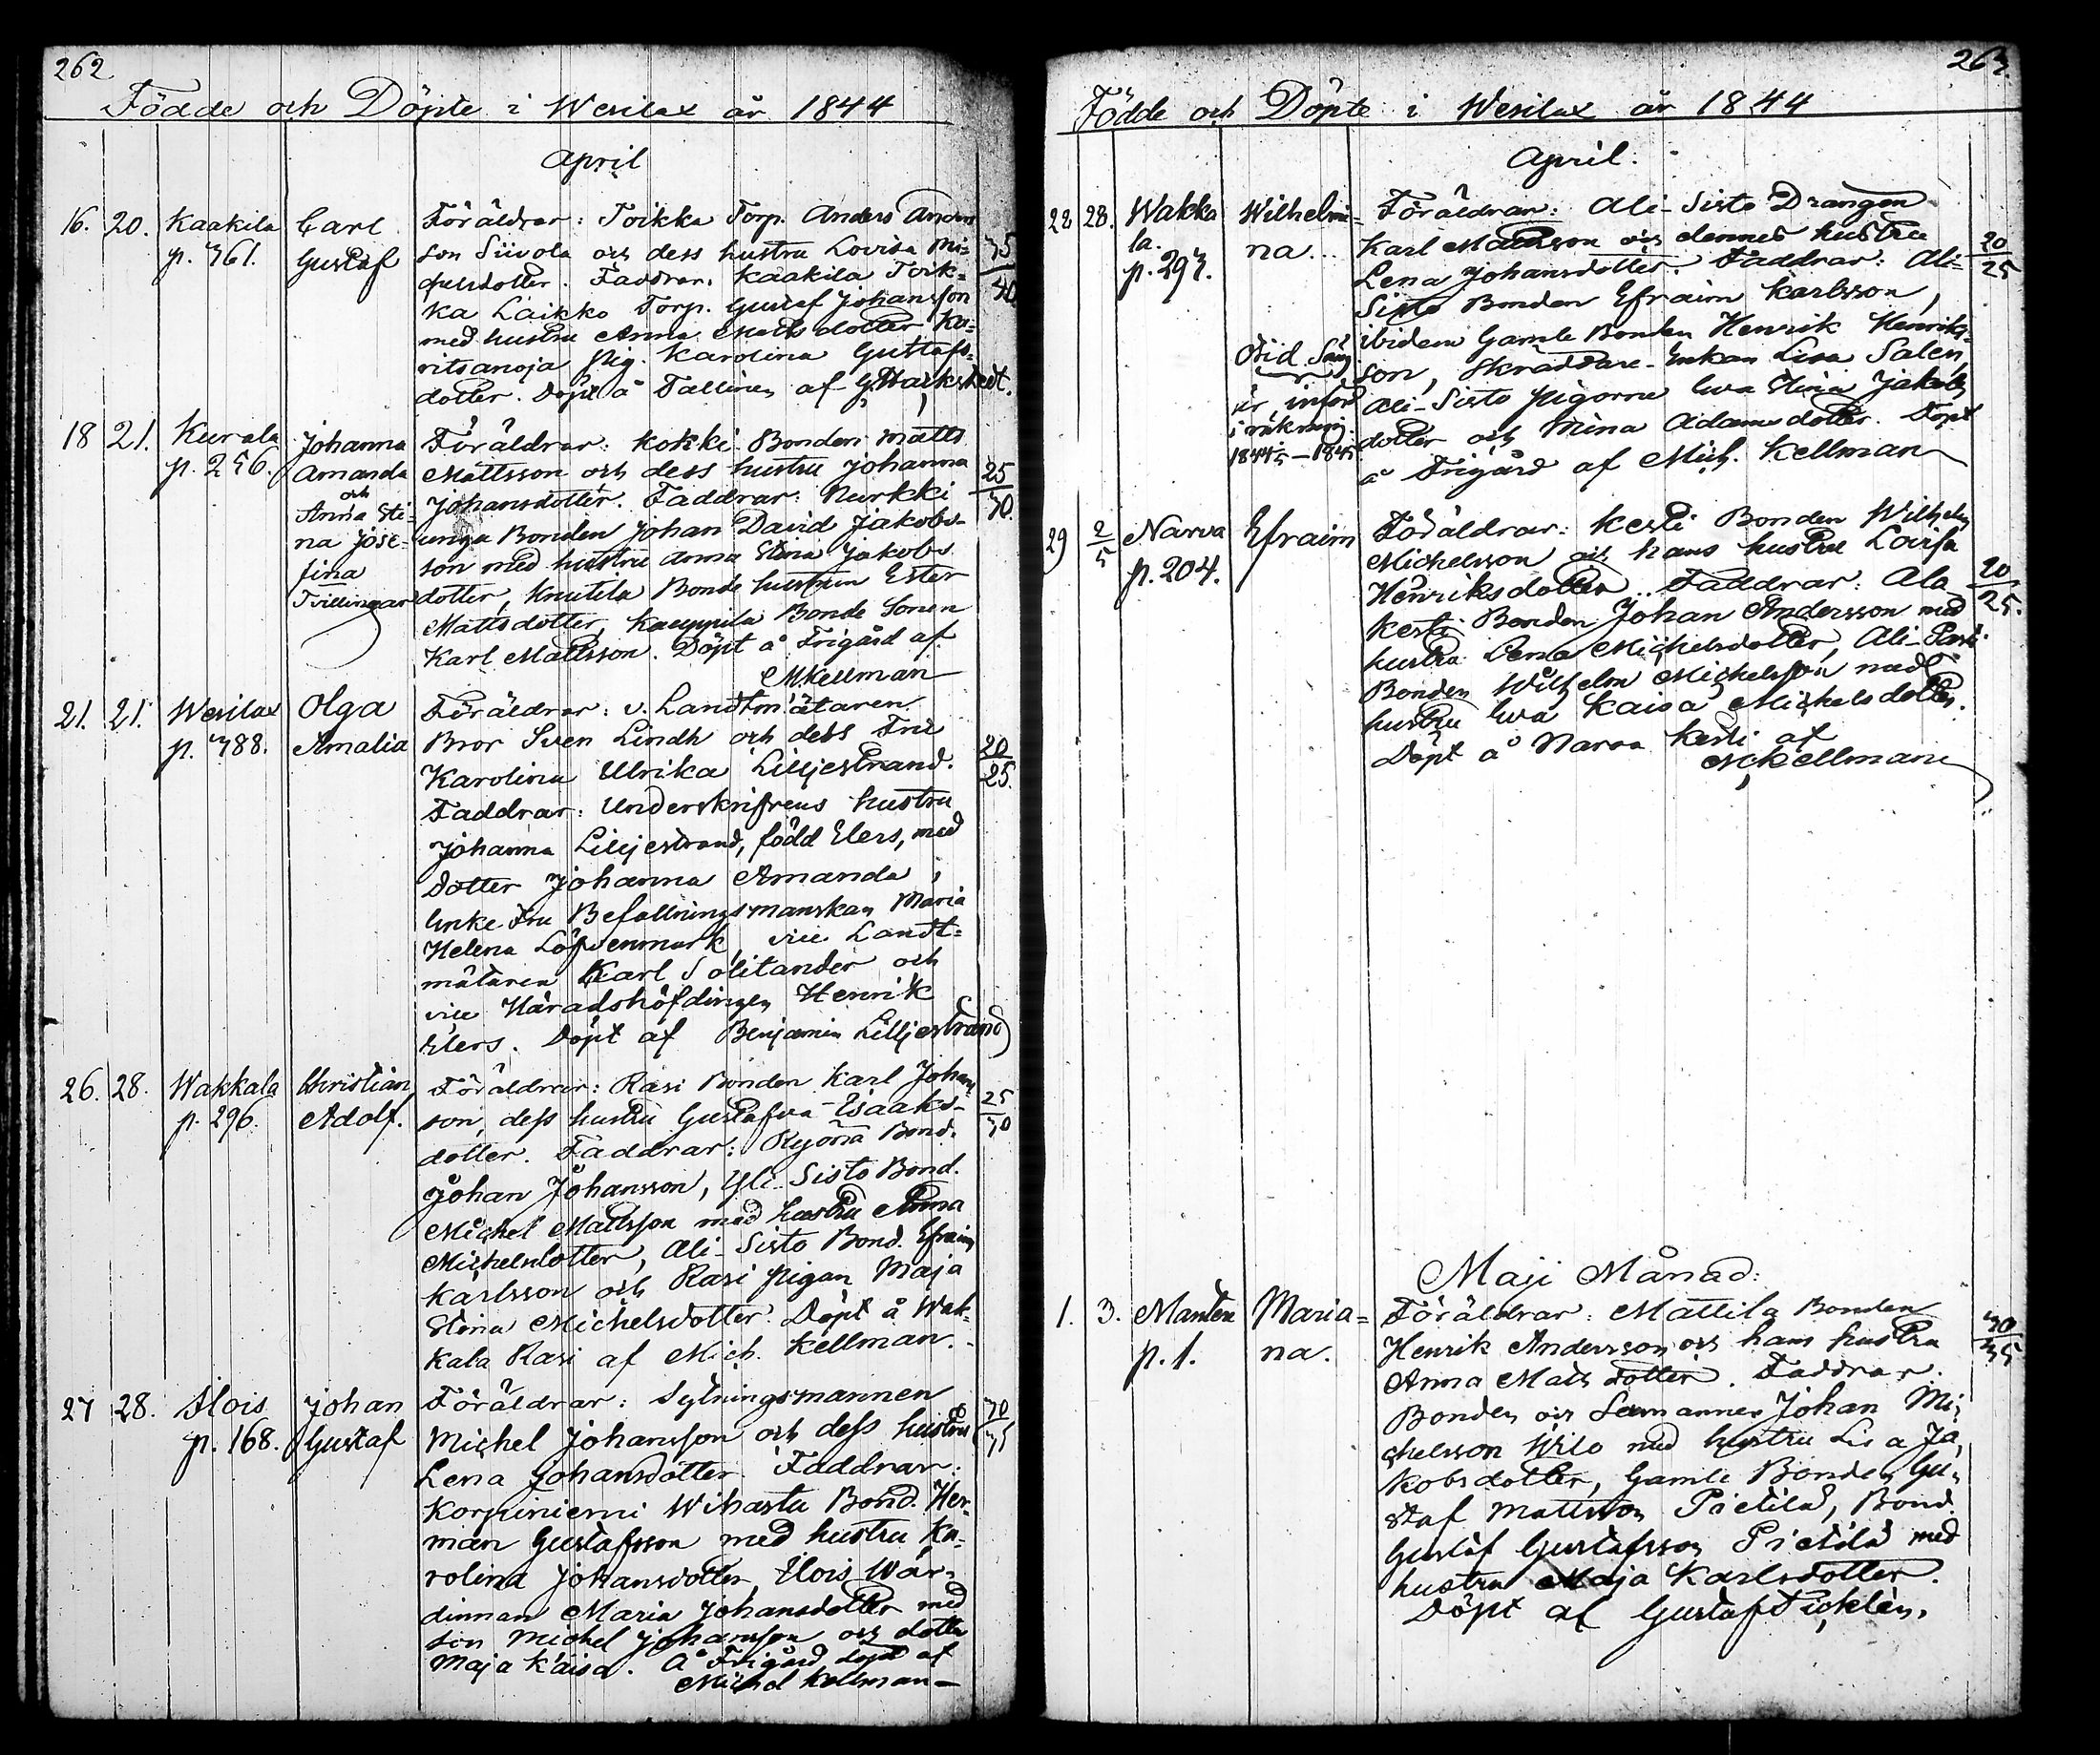 262
Födde och Döpte i Wesilax år 1844
April
16. 20. Kaakila p. 361. Carl Gustaf
Föräldrar: Toikka Torp. Anders Anders
son Siivola och dess hustru Lovisa Mi=
chelsdotter. Faddrar: Kaakila Toik=
ka Laikko Torp. Gustaf Johansson
med hustru Anna Matts dotter Ko=
ritsanoja Pig. Karolina Gustafs=
dotter. Döpt å Tallinen af G. Hackstedt.
35/40
18 21. Kurala p. 256. Johanna Amanda och Anna Sti= na Jose= fina Tvillingar
Föräldrar: Kokki Bonden Matts
Mattsson och dess hustru Johanna
Johansdotter. Faddrar: Nurkki
unga Bonden Johan David Jakobs-
son med hustru Anna Stina Jakobs
dotter, Knutila Bonde hustrun Ester
Mattsdotter, Kaeppila Bonde Sonen
Karl Mattsson. Döpt å Frigård af
MKellman
25/30.
21. 21. Wesilax p. 388. Olga Amalia
Föräldrar: v. Landtmätaren
Bror Sven Lindh och dess Fru
Karolina Ulrika Lilljestrand.
Faddrar: Underskrifvens hustru
Johanna Lilljestrand, född Elers, med
dotter Johanna Amanda,
Enke Fru Befallningsmanskan Maria
Helena Löfvenmark, vice Landt=
mätaren Karl Solitander och
vice Häradshöfdingen Henrik
Elers. Döpt af Benjamin Lilljestrand
20/25.
26. 28. Wakkala p. 296. Christian Adolf.
Föräldrar: Rasi Bonden Karl Johans
son, dess hustru Gustafva Isaaks-
dotter. Faddrar: Bond.
Johan Johansson, Yli-Sisto Bond.
Michel Mattsson med hustru Anna
Michelsdotter, Ali-Sisto Bond. Efraim
Karlsson och Rasi Pigan Maja
Stina Michelsdotter. Döpt å Wak=
kala Rasi af Mich. Kellman.
25/30
27 28. Ilois p. 168. Johan Gustaf
Föräldrar: Sytningsmannen
Michel Johansson och dess hustru
Lena Johansdotter. Faddrar:
Korpiniemi Wihastu Bond. Her=
man Gustafsson med hustru Ka=
rolina Johansdotter, Ilois Wär=
dinnan Maria Johansdotter med
son Michel Johansson och dotter
Maja Kaisa. Å Frigård döpt af
Michel Kellman
30/35
263.
Födde och Döpte i Wesilax år 1844
April.
28. Wakka la. p. 297. Wilhelmi= na..
Föräldrar: Ali-Sisto Drängen
Karl Mattsson och dennes hustru
Lena Johansdotter. Faddrar: Ali=
Sisto Bonden Efraim Karlsson,
ibidem Gamle Bonden Henrik Henriks=
son, Skräddare-Enkan Lisa Salén,
Ali-Sisto Pigorna Eva Stina Jakobs
dotter och Mina Adamsdotter. Döpt
å Frigård af Mich. Kellman
20/25
är införd
i räkning.
29 2/5 Narva p. 204. Efraim
Föräldrar: Kesti Bonden Wilhelm
Michelsson och hans hustru Lovisa
Henriksdotter.. Faddrar: Ala
Kesti Bonden Johan Andersson med
hustru Lena Michelsdotter, Ali-
Bonden Wilhelm Michelsson med
hustru Eva Kaisa Michelsdotter.
Döpt å Narva Kesti af
MKellman
20/25.
Maji Månad:
1. 3. p. 1. Maria= na.
Föräldrar: Mattila Bonden
Henrik Andersson och hans hustru
Anna Matts dotter. Faddrar:
Bonden och Johan Mi=
chelsson Wilo med hustru Lisa Ja
kobsdotter, Gamle Bonden Gu=
staf Mattsson Pietilä, Bond.
Gustaf Gustafsson Pietilä med
hustru Maja Karlsdotter.
Döpt af Gustaf
30/35